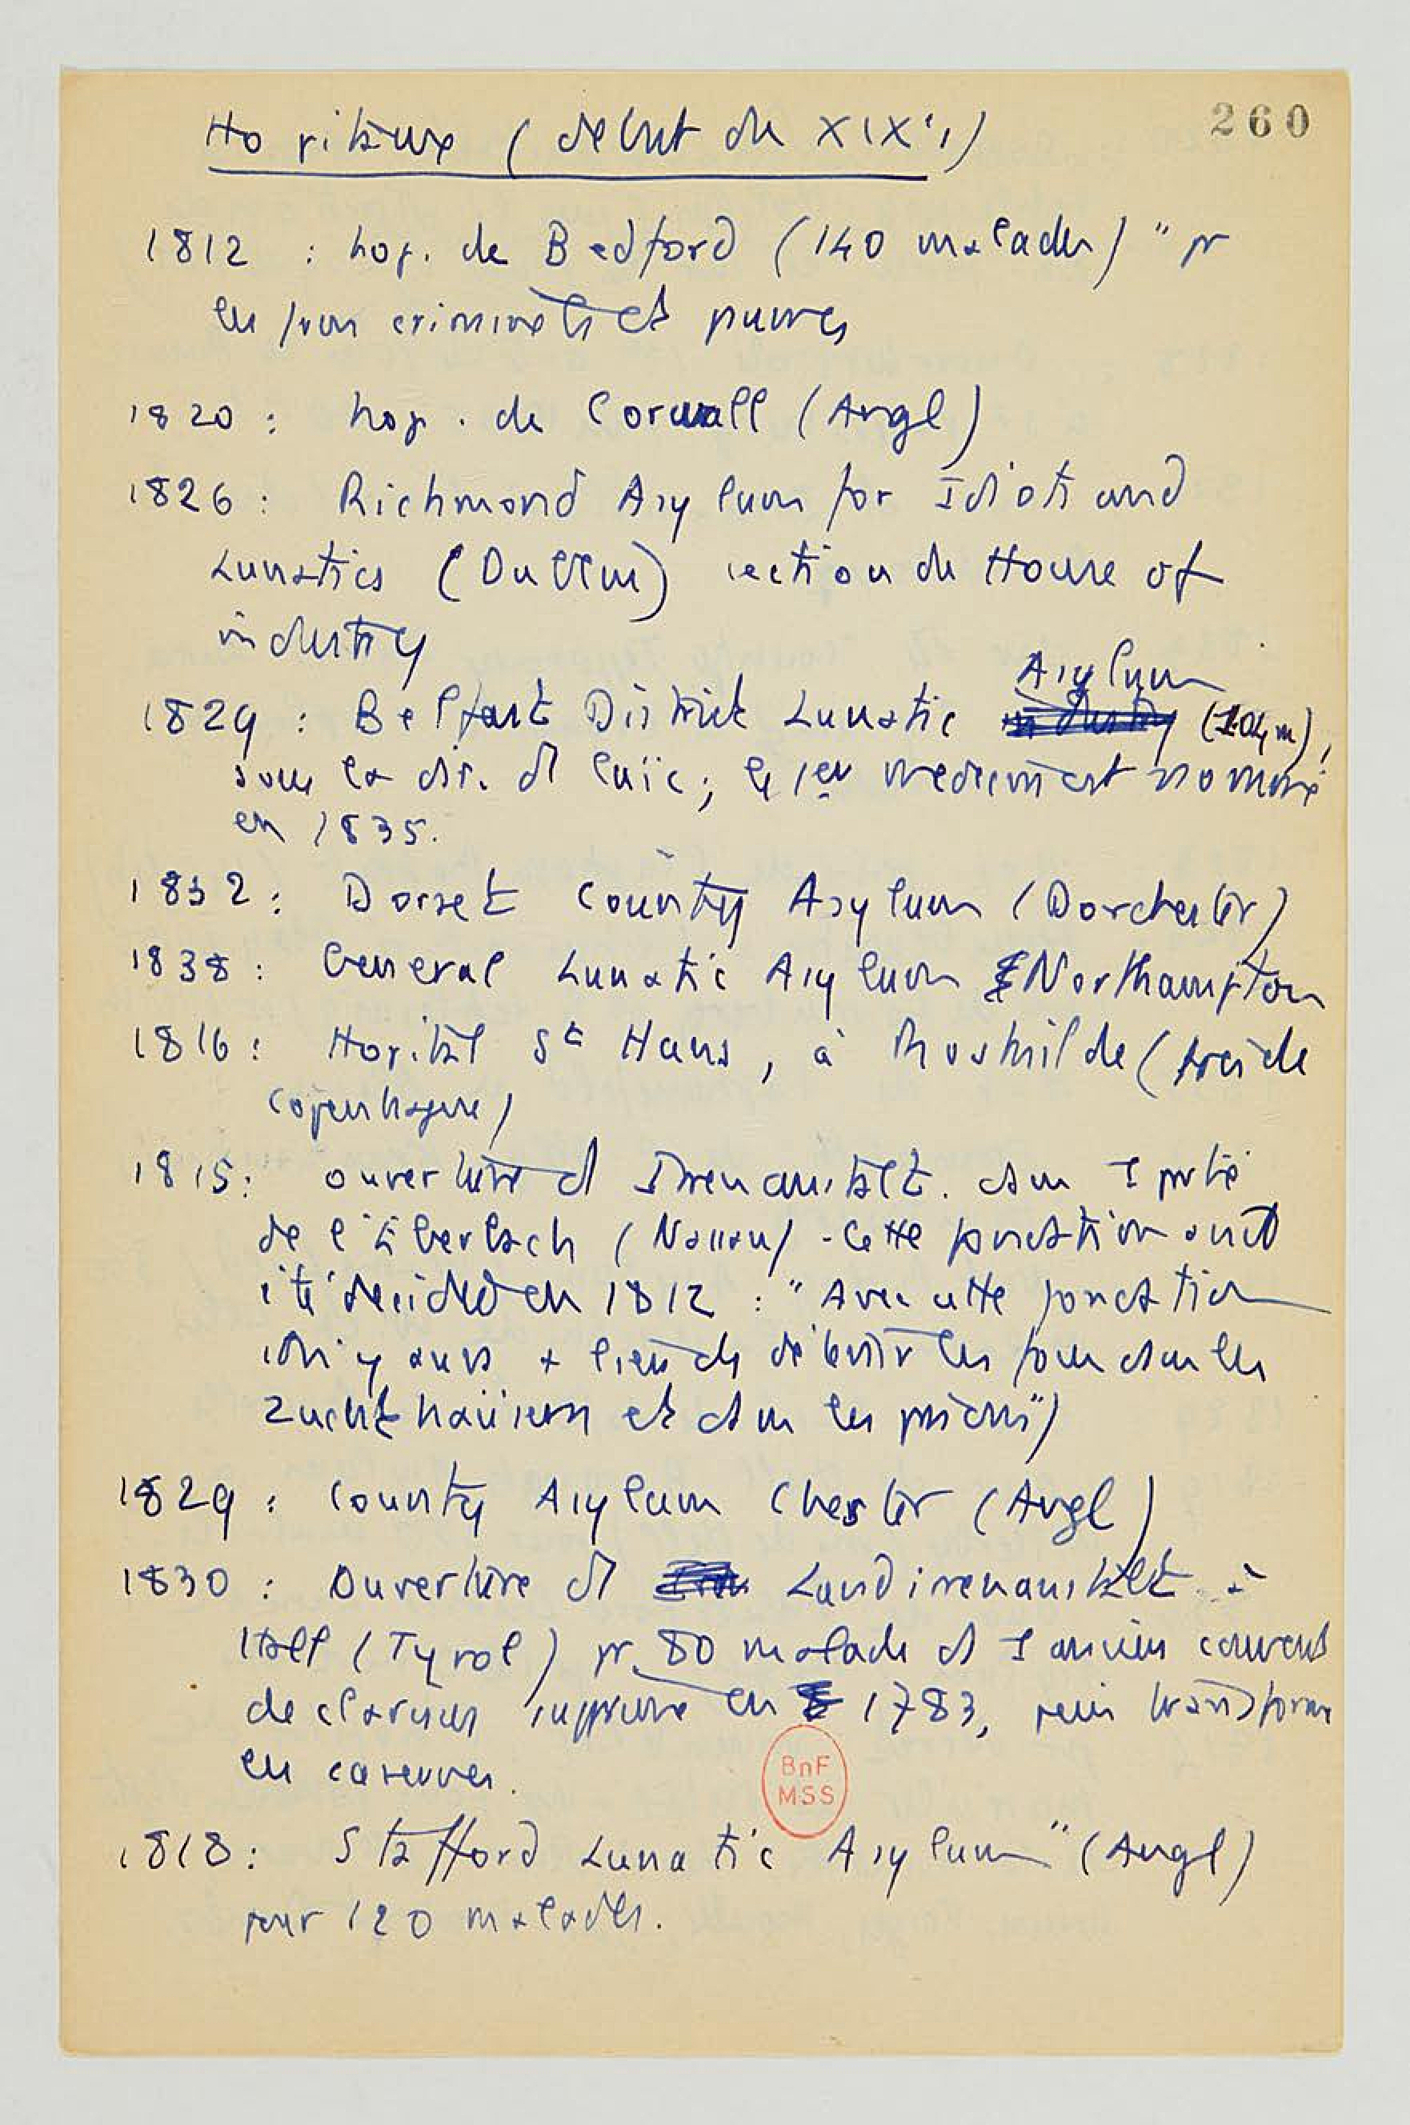 260
Hopitaux (début du XIXe s)
1812 : hop. de Bedford (140 malades) " pr
les fous criminels et pauvres
1820 : hop. de Cornwall (Angl)
1826 : Richmond Asylum for Idiots and
Lunatics (Dublin) section du House of
industry
Asylum
1829 : Belfast District Lunatic (104 m),
sous la dir. d laïc ; le 1er medecin est nommé
en 1835.
1832 : Dorset County Asylum (Dorchester)
1838 : General Lunatic Asylum Northampton
1816 : Hopital St Hans, à Roskilde (près de
Copenhague)
1815 : ouverture d Irrenanstalt. dans 1 partie
de l'Eberbach (Nassau) - Cette fondation avait
été décidée en 1812 : " Avec cette fondation
on y aura lieu de détenir les fous dans les
Zuchthaüsern et dans les prisons")
1829 : County Asylum Chester (Angl)
1830 : Ouverture d Landirrenanstalt à
Hall (Tyrol) pr 80 malades ds 1 ancien couvent
de clarisses supprimé en 1783, puis transformé
en casernes.
BnF
MSS
1818 : Stafford Lunatic Asylum" (Angl)
pour 120 malades.